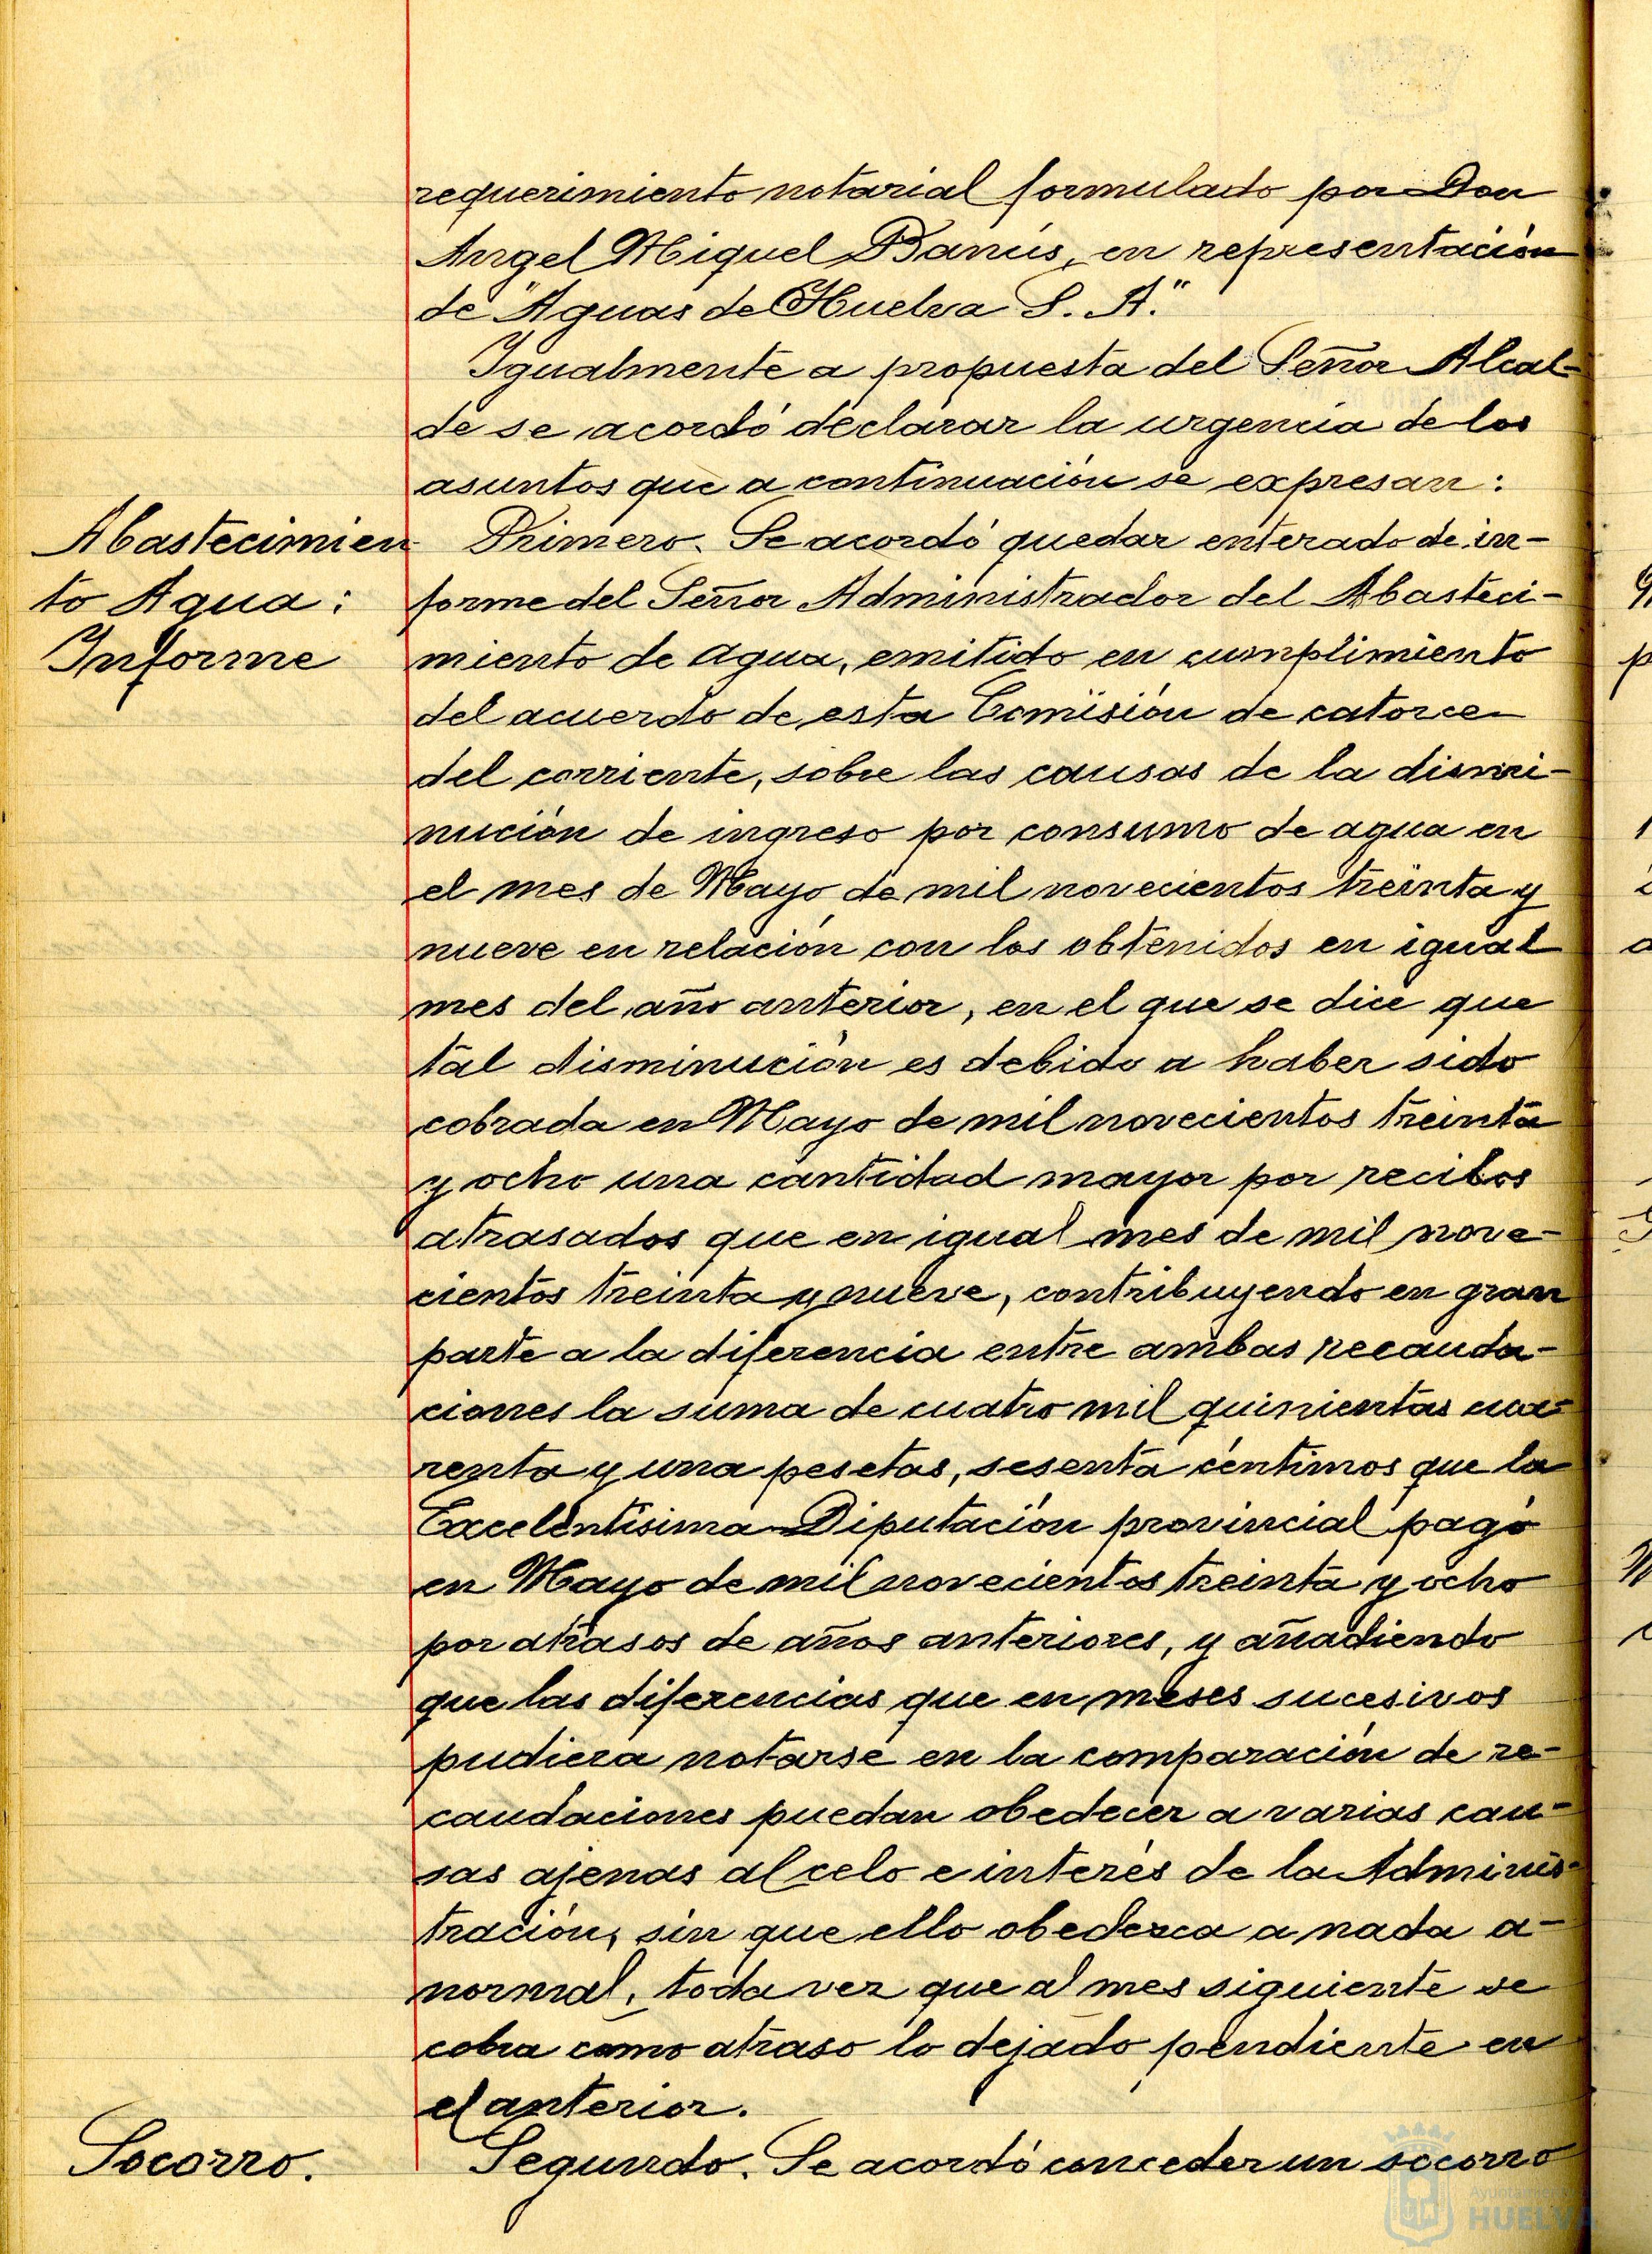 requerimiento notarial formulado por Don
Angel Miguel Banús, en representación
de "Aguas de Huelva S. A."
Igualmente a propuesta del Señor Alcal-
de se acordó declarar la urgencia de los
asuntos que a continuación se expresan:
Abastecimien
to Agua:
Informe
Primero. Se acordó quedar enterado de in-
forme del Señor Administrador del Abasteci-
miento de agua, emitido en cumplimiento
del acuerdo de esta Comisión de catorce
del corriente, sobre las causas de la dismi-
nución de ingreso por consumo de agua en
el mes de Mayo de mil novecientos treinta y
nueve en relación con los obtenidos en igual
mes del año anterior, en el que se dice que
tal disminución es debido a haber sido
cobrada en Mayo de mil novecientos treinta
y ocho una cantidad mayor por recibos
atrasados que en igual mes de mil nove-
cientos treinta y nueve, contribuyendo en gran
parte a la diferencia entre ambas recauda-
ciones la suma de cuatro mil quinientas cua-
renta y una pesetas, sesenta céntimos que la
Excelentísima Diputación provincial pagó
en Mayo de mil novecientos treinta y ocho
por atrasos de años anteriores, y añadiendo
que las diferencias que en meses sucesivos
pudiera notarse en la comparación de re-
caudaciones puedan obedecer a varias cau-
sas ajenas al celo e interés de la Adminis-
tración, sin que ello obedezca a nada a-
normal, toda vez que al mes siguiente se
cobra como atraso lo dejado pendiente en
el anterior.
Socorro.
Segundo. Se acordó conceder un socorro
Ayuntamiento de
HUELVA